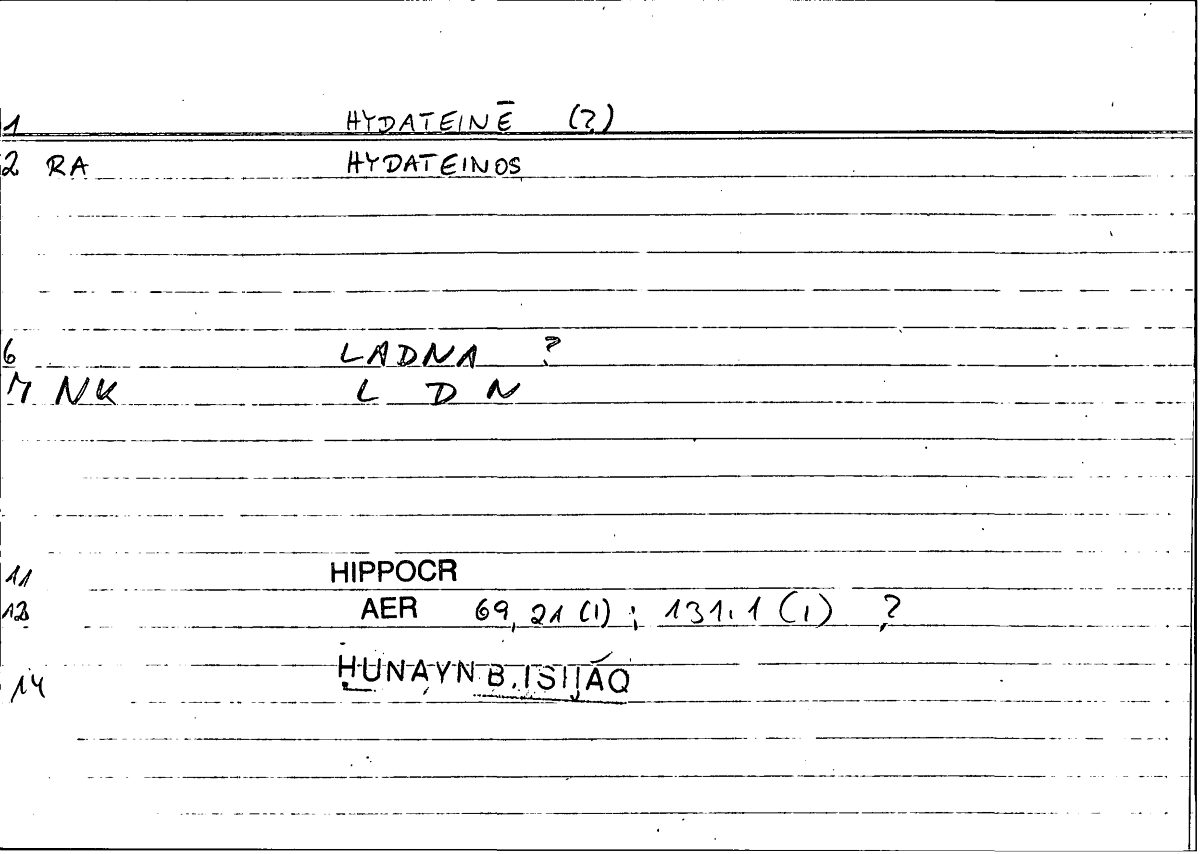 1 HYDATEINĒ (?)
2 RA HYDATEINOS
6 LADNA ?
7 NK L D N
11 HIPPOCR
12 AER 69, 21 (1) ; 131. 1 (1) ?
14 ḤUNAYN B. ISḤĀQ